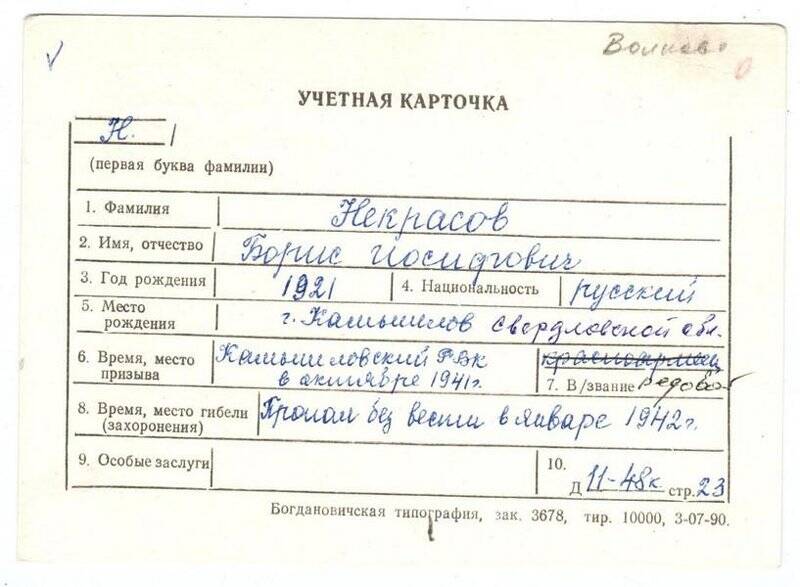 УЧЕТНАЯ КАРТОЧКА
Н.
(первая буква фамилии)
1. Фамилия Некрасов
2. Имя, отчество Борис Иосифович
3. Год рождения 1921 4. Национальность русский
5. Место рождения г. Камышлов Свердловской обл.
6. Время, место призыва Камышловский РВК в октябре 1941г.
красноармеец
7. В/звание рядовой
8. Время, место гибели (захоронения) Пропал без вести в январе 1942г.
9. Особые заслуги
10. Д 11-48к стр. 23
Богдановичская типография, зак. 3678, тир. 10000, 3-07-90.